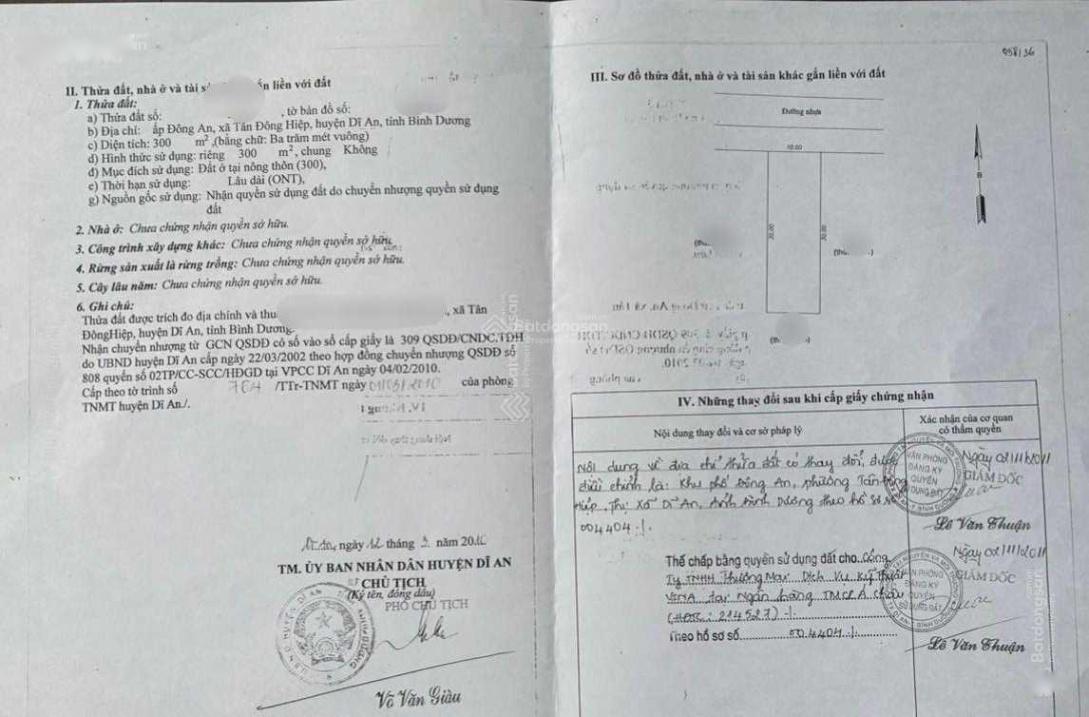 II. Thửa đất, nhà ở và tài s ắn liền với đất
1. Thửa đất:
a) Thửa đất số: , tờ bản đồ số:
b) Địa chỉ: ấp Đông An, xã Tân Đông Hiệp, huyện Dĩ An, tỉnh Bình Dương
c) Diện tích: 300 m², (bằng chữ: Ba trăm mét vuông)
d) Hình thức sử dụng: riêng 300 m², chung Không
đ) Mục đích sử dụng: Đất ở tại nông thôn (300),
e) Thời hạn sử dụng: Lâu dài (ONT),
g) Nguồn gốc sử dụng: Nhận quyền sử dụng đất do chuyển nhượng quyền sử dụng
đất
2. Nhà ở: Chưa chứng nhận quyền sở hữu.
3. Công trình xây dựng khác: Chưa chứng nhận quyền sở hữu.
4. Rừng sản xuất là rừng trồng: Chưa chứng nhận quyền sở hữu.
5. Cây lâu năm: Chưa chứng nhận quyền sở hữu.
6. Ghi chú:
Thửa đất được trích đo địa chính và thu , xã Tân
ĐôngHiệp, huyện Dĩ An, tỉnh Bình Dương.
Nhận chuyển nhượng từ GCN QSDĐ có số vào sổ cấp giấy là 309 QSDĐ/CNDC.TDH
do UBND huyện Dĩ An cấp ngày 22/03/2002 theo hợp đồng chuyển nhượng QSDĐ số
808 quyển số 02TP/CC-SCC/HĐGD tại VPCC Dĩ An ngày 04/02/2010.
Cấp theo tờ trình số /TTr-TNMT ngày của phòng
TNMT huyện Dĩ An./.
Dĩ An, ngày 12 tháng 3 năm 2010
TM. ỦY BAN NHÂN DÂN HUYỆN DĨ AN
CHỦ TỊCH
(Ký tên, đóng dấu)
PHÓ CHỦ TỊCH
Võ Văn Giàu
058136
III. Sơ đồ thửa đất, nhà ở và tài sản khác gắn liền với đất
Đường nhựa
10.00
B
30.00 30.00
IV. Những thay đổi sau khi cấp giấy chứng nhận
Nội dung thay đổi và cơ sở pháp lý
Xác nhận của cơ quan
có thẩm quyền
Nội dung về địa chỉ thửa đất có thay đổi, được
điều chỉnh là: Khu phố Đông An, phường Tân Đông
Hiệp, Thị Xã Dĩ An, tỉnh Bình Dương theo hồ sơ số
004404 ./.
Ngày 02/11/2011
GIÁM ĐỐC
VĂN PHÒNG
ĐĂNG KÝ
QUYỀN
SỬ DỤNG ĐẤT
Lê Văn Thuận
Thế chấp bằng quyền sử dụng đất cho Công
Ty TNHH Thương Mại Dịch Vụ Kỹ Thuật
VINA tại Ngân hàng TMCP Á Châu
(HĐTC: 214527) ./.
Theo hồ sơ số 004404 ./.
Ngày 02/11/2011
GIÁM ĐỐC
VĂN PHÒNG
ĐĂNG KÝ
QUYỀN
SỬ DỤNG ĐẤT
Lê Văn Thuận
Batdongsan